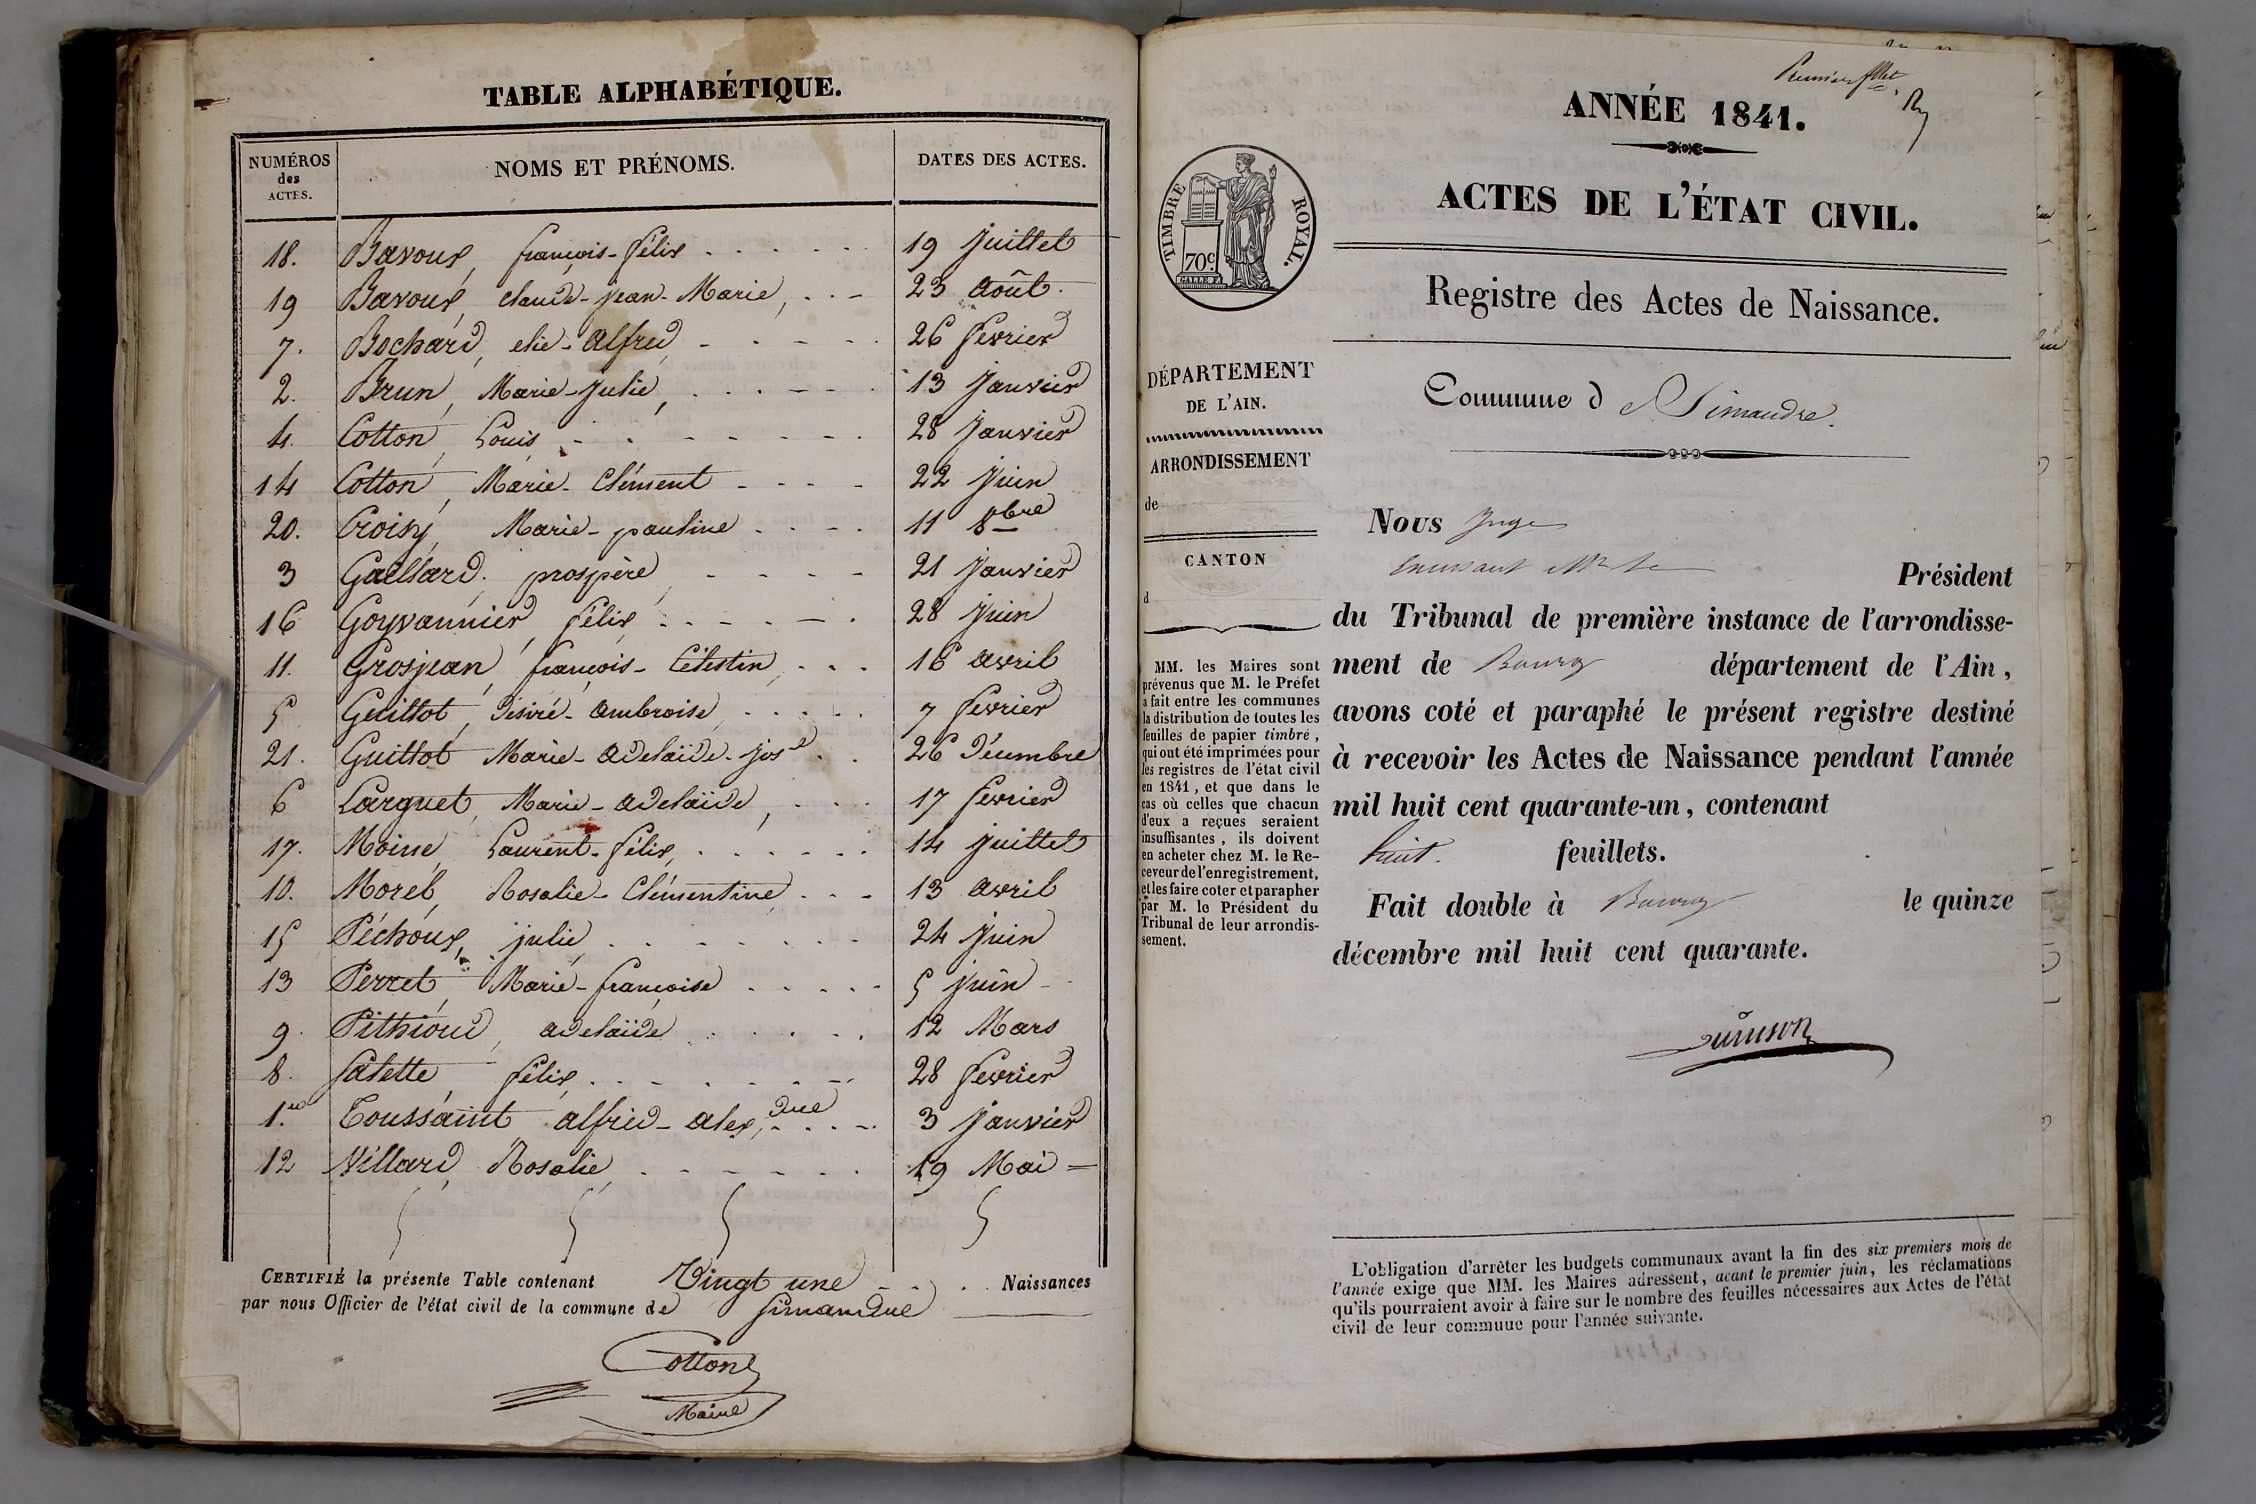 TABLE ALPHABÉTIQUE.
NUMÉROS des ACTES. NOMS ET PRÉNOMS. DATES DES ACTES.
18. Bavoux, françois-félix 19 Juillet
19 Bavoux, claude-jean-Marie, 23 Août
7. Bochard, elie-Alfred 26 février
2. Brun, Marie-Julie, 13 Janvier
4. Cotton, Louis 28 Janvier
14 Cotton, Marie-Clément 22 Juin
20. Croisy, Marie-pauline 11 8bre
3 Gaillard, prospère, 21 Janvier
16 Goyvannier, félix 28 Juin
11. Grosjean, françois-Célestin, 16 avril
5 Guillot, Désiré-ambroise 7 février
21. Guillot Marie-adelaïde-jos 26 Décembre
6 Larguet, Marie-adelaïde, 17 février
17. Moine, Laurent-félix, 14 Juillet
10. Morel, Rosalie-Clémentine 13 avril
15 Péchoux, julie, 24 Juin
13 Perret, Marie-françoise 5 juin
9. Pithioud, adelaïde 12 Mars
8. Salette, félix 28 février
1.er Toussaint alfred-alex.dre 3 Janvier
12 Villard, Rosalie, 19 Mai
CERTIFIÉ la présente Table contenant Vingt une Naissances
par nous Officier de l'état civil de la commune de Simandre
Cotton
Maire
Premier fllet
ANNÉE 1841.
ACTES DE L'ÉTAT CIVIL.
TIMBRE ROYAL.
70c
Registre des Actes de Naissance.
DÉPARTEMENT
DE L'AIN.
ARRONDISSEMENT
de
CANTON
d
MM. les Maires sont
prévenus que M. le Préfet
a fait entre les communes
la distribution de toutes les
feuilles de papier timbré,
qui ont été imprimées pour
les registres de l'état civil
en 1841, et que dans le
cas où celles que chacun
d'eux a reçues seraient
insuffisantes, ils doivent
en acheter chez M. le Re-
ceveur de l'enregistrement,
et les faire coter et parapher
par M. le Président du
Tribunal de leur arrondis-
sement.
Commune d e Simandre.
Nous Juge
Président
du Tribunal de première instance de l'arrondisse-
ment de Bourg département de l'Ain,
avons coté et paraphé le présent registre destiné
à recevoir les Actes de Naissance pendant l'année
mil huit cent quarante-un, contenant
huit. feuillets.
Fait double à Bourg le quinze
décembre mil huit cent quarante.
L'obligation d'arrêter les budgets communaux avant la fin des six premiers mois de
l'année exige que MM. les Maires adressent, avant le premier juin, les réclamations
qu'ils pourraient avoir à faire sur le nombre des feuilles nécessaires aux Actes de l'état
civil de leur commune pour l'année suivante.